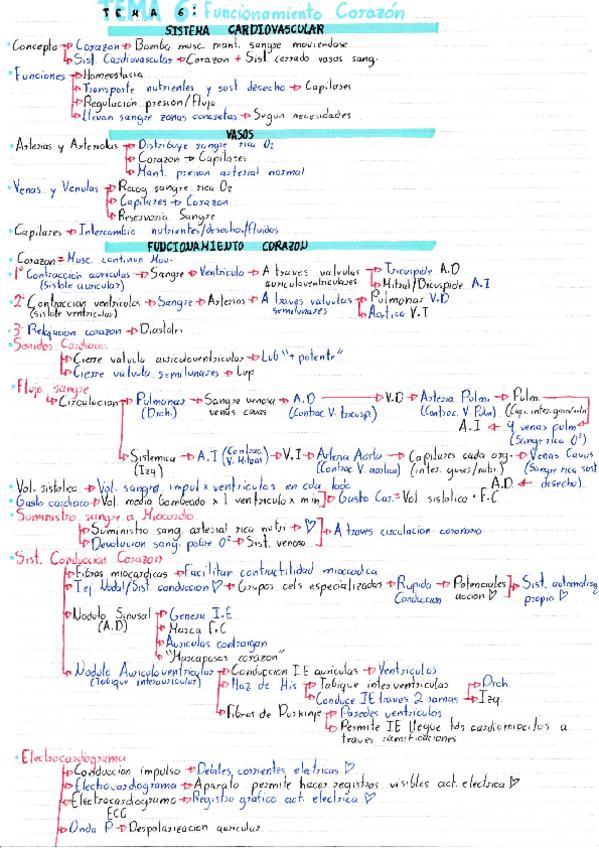 TEMA 6: Funcionamiento Corazón
SISTEMA CARDIOVASCULAR
• Concepto → Corazon → Bomba musc. mant. sangre moviendose
→ Sist. Cardiovascular → Corazon + Sist cerrado vasos sang.
• Funciones → Homeostasia
→ Transporte nutrientes y sust desecho → Capilares
→ Regulación presion/Flujo
→ Llevan sangre zonas concretas → Segun necesidades
VASOS
• Arterias y Arteriolas → Distribuye sangre rica O2
→ Corazon → Capilares
→ Mant. presion arterial normal
• Venas y Venulas → Recog sangre rica O2
→ Capilares → Corazon
→ Reservorio Sangre
• Capilares → Intercambio nutrientes/desechos/fluidos
FUNCIONAMIENTO CORAZON
• Corazon = Musc. continuo Mov.
1º Contracción auriculas → Sangre → Ventriculo → A traves valvulas auriculoventriculares → Tricuspide A.D
(Sistole auricular) → Mitral/Bicuspide A.I
2º Contraccion ventriculos → Sangre → Arterias → A traves valvulas semilunares → Pulmonar V.D
(sistole ventricular) → Aortica V.I
3º Relajacion corazon → Diastole
• Sonidos Cardiacos
→ Cierre valvula auriculoventricular → Lub "+ potente"
→ Cierre valvula semilunares → Lup
• Flujo sangre
→ Circulacion → Pulmonar → Sangre venosa → A.D → V.D → Arteria Pulm. → Pulm.
(Drch.) venas cavas (Contrac V. tricusp.) (Contrac. V. Pulm)
A.I ← 4 venas pulm
(Sangre rica O2)
→ Sistemica → A.I (Contrac. V. Mitral) → V.I → Arteria Aorta → Capilares cada org. → Venas Cavas
(Izq) (Contrac V. aortica) (inter. gases/nutri.) (Sangre rica sust desecho)
A.D ←
• Vol. sistolico → Vol. sangre impul x ventriculos en cda lado
• Gasto cardiaco → Vol. medio bombeado x 1 ventriculo x min → Gasto Car. = Vol sistolico · F.C
• Suministro sangre a Miocardio
→ Suministro sang. arterial rica nutri → ♡ → A traves circulacion coronaria
→ Devolucion sang. pobre O2 → Sist. venoso
• Sist. Conduccion Corazon
→ Fibras miocardicas → Facilitar contractilidad miocardica
→ Tej. Nodal/Sist. conduccion ♡ → Grupos cels especializadas → Rapida Conduccion → Potenciales accion ♡ → Sist. automatico propio ♡
→ Nodulo Sinusal → Genera I.E
(A.D) → Marca F.C
→ Auriculas contraigan
→ "Marcapasos corazon"
→ Nodulo Auriculoventricular → Conduccion I.E auriculas → Ventriculos
(Tabique interauricular) → Haz de His → Tabique interventricular → Drch.
→ Conduce IE traves 2 ramas → Izq.
→ Fibras de Purkinje → Paredes ventriculos
→ Permite IE llegue tds cardiomiocitos a traves ramificaciones
• Electrocardiograma
→ Conduccion impulso → Debiles corrientes electricas ♡
→ Electrocardiografo → Aparato permite hacer registros visibles act. electrica ♡
→ Electrocardiograma → Registro grafico act. electrica ♡
ECG
→ Onda P → Despolarizacion auricular